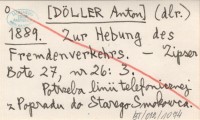 [DÖLLER Anton] (dlr.)
1889. Zur Hebung des
Fremdenverkehrs. — Zipser
Bote 27, nr 26: 3.
Potrzeba linii telefonicznej
z Popradu do Starego Smokowca.